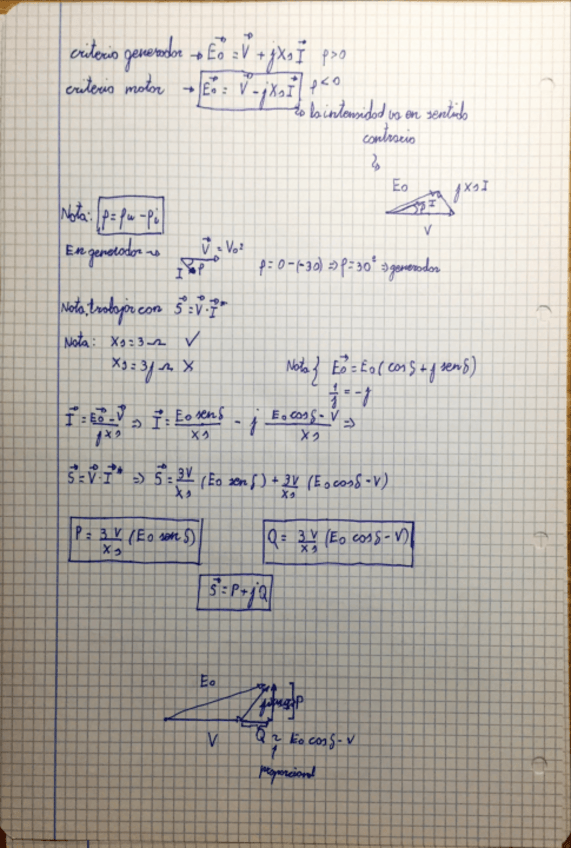 criterio generador → E⃗o = V⃗ + jXs I⃗ φ>0
criterio motor → E⃗o = V⃗ - jXs I⃗ φ<0
↳ la intensidad va en sentido
contrario
Eo jXsI
φ I
V
Nota: φ = φu - φi
En generador → V⃗ = V0º
I φ
φ = 0-(-30) ⇒ φ = 30º ⇒ generador
Nota, trabajar con S⃗ = V⃗ · I⃗*
Nota: Xs = 3 Ω ✓
Xs = 3j Ω X
Nota { E⃗o = Eo (cos δ + j sen δ)
1/j = -j
I⃗ = (E⃗o - V⃗)/(jXs) ⇒ I⃗ = (Eo sen δ)/Xs - j (Eo cos δ - V)/Xs ⇒
S⃗ = V⃗ · I⃗* ⇒ S⃗ = 3V/Xs (Eo sen δ) + 3V/Xs (Eo cos δ - V)
P = 3V/Xs (Eo sen δ)
Q = 3V/Xs (Eo cos δ - V)
S⃗ = P + jQ
Eo
P
V
Q ≈ Eo cos δ - V
proporcional